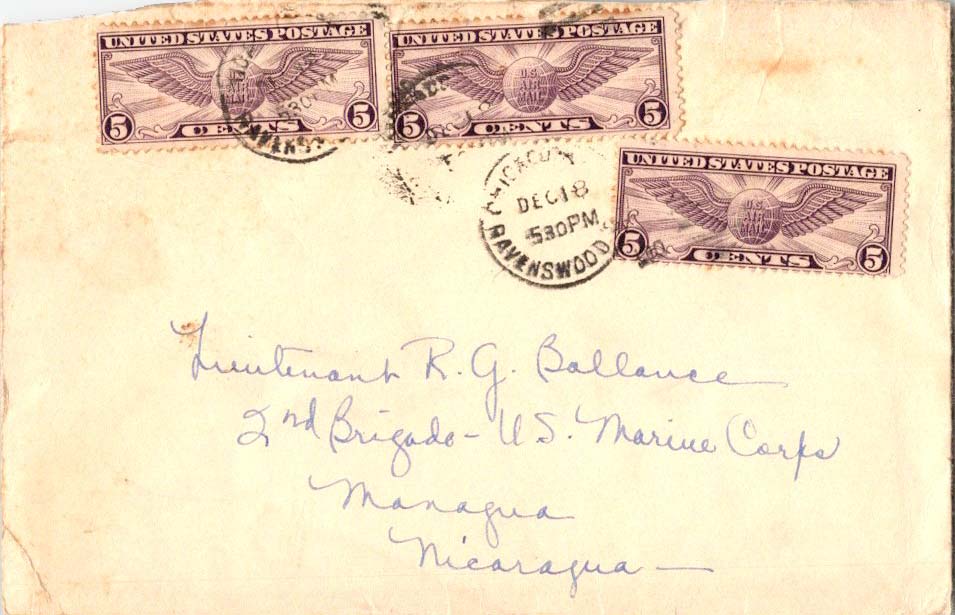 UNITED STATES POSTAGE
U.S. AIR MAIL
5 CENTS 5
UNITED STATES POSTAGE
U.S. AIR MAIL
5 CENTS 5
UNITED STATES POSTAGE
U.S. AIR MAIL
5 CENTS 5
CHICAGO
DEC 18
530 PM
RAVENSWOOD
Lieutenant R. G. Ballance
2nd Brigade - U S. Marine Corps
Managua
Nicaragua —